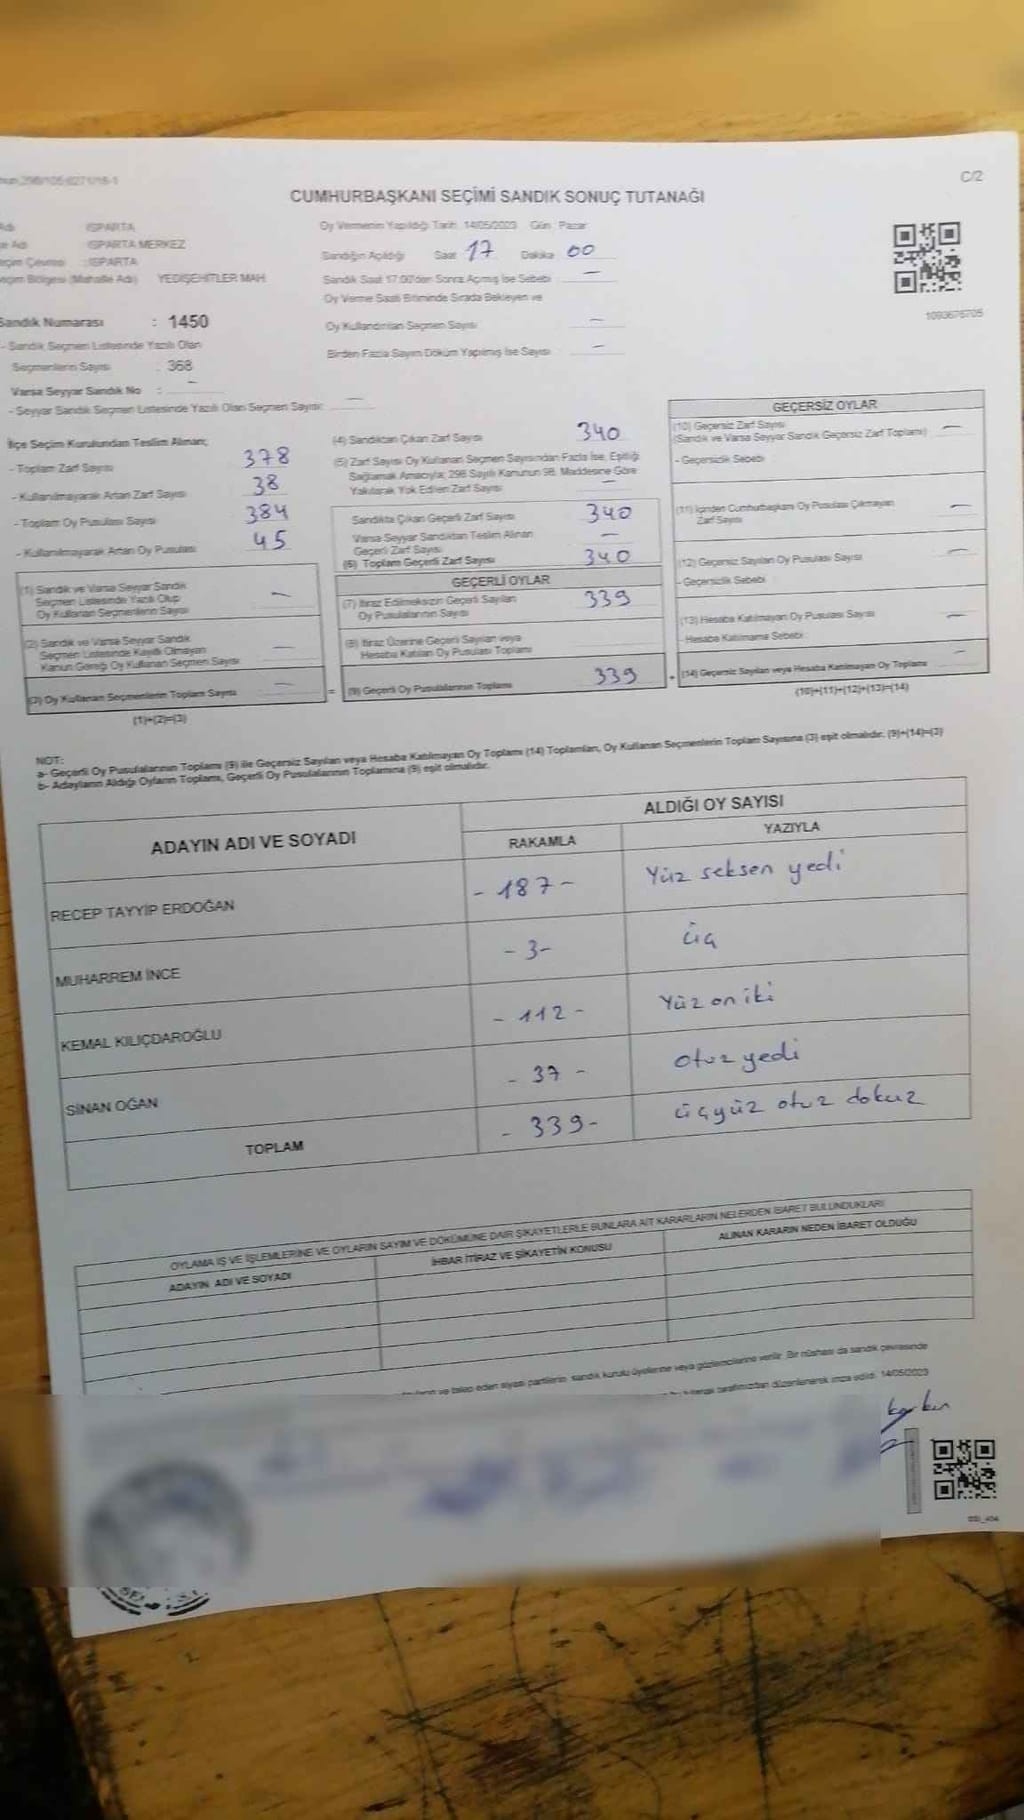 C/2
CUMHURBAŞKANI SEÇİMİ SANDIK SONUÇ TUTANAĞI
ISPARTA
Oy Vermenin Yapıldığı Tarih: 14/05/2023 Gün : Pazar
ISPARTA MERKEZ
Sandığın Açıldığı Saat 17 Dakika 00
: ISPARTA
Sandık Saat 17:00'den Sonra Açılmış İse Sebebi —
(Mahalle Adı) YEDİŞEHİTLER MAH
Oy Verme Saati Bitiminde Sırada Bekleyen ve
Oy Kullandırılan Seçmen Sayısı —
1093676705
Sandık Numarası : 1450
Birden Fazla Sayım Döküm Yapılmış İse Sayısı —
- Sandık Seçmen Listesinde Yazılı Olan
Seçmenlerin Sayısı : 368
Varsa Seyyar Sandık No : —
- Seyyar Sandık Seçmen Listesinde Yazılı Olan Seçmen Sayısı: —
İlçe Seçim Kurulundan Teslim Alınan;
- Toplam Zarf Sayısı 378
- Kullanılmayarak Artan Zarf Sayısı 38
- Toplam Oy Pusulası Sayısı 384
- Kullanılmayarak Artan Oy Pusulası 45
(1) Sandık ve Varsa Seyyar Sandık
Seçmen Listesinde Yazılı Olup
Oy Kullanan Seçmenlerin Sayısı —
(2) Sandık ve Varsa Seyyar Sandık
Seçmen Listesinde Kayıtlı Olmayan
Kanun Gereği Oy Kullanan Seçmen Sayısı —
(3) Oy Kullanan Seçmenlerin Toplam Sayısı —
(1)+(2)=(3)
(4) Sandıktan Çıkan Zarf Sayısı 340
(5) Zarf Sayısı Oy Kullanan Seçmen Sayısından Fazla İse, Eşitliği
Sağlamak Amacıyla; 298 Sayılı Kanunun 98. Maddesine Göre
Yakılarak Yok Edilen Zarf Sayısı —
Sandıkta Çıkan Geçerli Zarf Sayısı 340
Varsa Seyyar Sandıktan Teslim Alınan
Geçerli Zarf Sayısı —
(6) Toplam Geçerli Zarf Sayısı 340
GEÇERLİ OYLAR
(7) İtiraz Edilmeksizin Geçerli Sayılan
Oy Pusulalarının Sayısı 339
(8) İtiraz Üzerine Geçerli Sayılan veya
Hesaba Katılan Oy Pusulası Toplamı
= (9) Geçerli Oy Pusulalarının Toplamı 339
GEÇERSİZ OYLAR
(10) Geçersiz Zarf Sayısı
(Sandık ve Varsa Seyyar Sandık Geçersiz Zarf Toplamı) —
- Geçersizlik Sebebi
(11) İçinden Cumhurbaşkanı Oy Pusulası Çıkmayan
Zarf Sayısı —
(12) Geçersiz Sayılan Oy Pusulası Sayısı —
- Geçersizlik Sebebi
(13) Hesaba Katılmayan Oy Pusulası Sayısı —
- Hesaba Katılmama Sebebi
+ (14) Geçersiz Sayılan veya Hesaba Katılmayan Oy Toplamı —
(10)+(11)+(12)+(13)=(14)
NOT:
a- Geçerli Oy Pusulalarının Toplamı (9) ile Geçersiz Sayılan veya Hesaba Katılmayan Oy Toplamı (14) Toplamları, Oy Kullanan Seçmenlerin Toplam Sayısına (3) eşit olmalıdır. (9)+(14)=(3)
b- Adayların Aldığı Oyların Toplamı, Geçerli Oy Pusulalarının Toplamına (9) eşit olmalıdır.
ADAYIN ADI VE SOYADI
ALDIĞI OY SAYISI
RAKAMLA YAZIYLA
RECEP TAYYİP ERDOĞAN - 187 - Yüz seksen yedi
MUHARREM İNCE - 3 - üç
KEMAL KILIÇDAROĞLU - 112 - Yüz on iki
SİNAN OĞAN - 37 - otuz yedi
TOPLAM - 339 - üçyüz otuz dokuz
OYLAMA İŞ VE İŞLEMLERİNE VE OYLARIN SAYIM VE DÖKÜMÜNE DAİR ŞİKAYETLERLE BUNLARA AİT KARARLARIN NELERDEN İBARET BULUNDUKLARI
ADAYIN ADI VE SOYADI İHBAR İTİRAZ VE ŞİKAYETİN KONUSU ALINAN KARARIN NEDEN İBARET OLDUĞU
ve talep eden siyasi partilerin sandık kurulu üyelerine veya gözlemcilerine verilir. Bir nüshası da sandık çevresinde
tarafımızdan düzenlenerek imza edildi. 14/05/2023